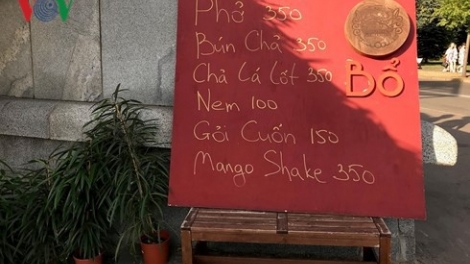 VOV
Phở 350
Bún Chả 350
Chả Lá Lốt 350
Bổ
Nem 100
Gỏi Cuốn 150
Mango Shake 350